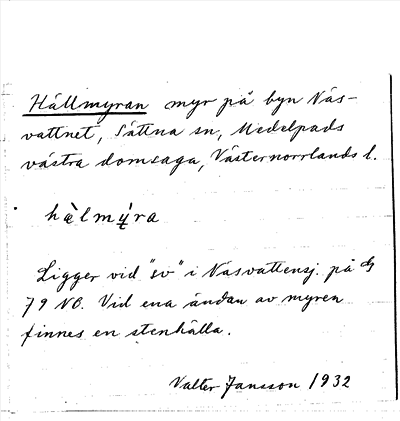 Hällmyran myr på byn Näs-
vattnet, Sättna sn, Medelpads
västra domsaga, Västernorrlands l.
hὲlmýra
Ligger vid "sv" i Näsvattensj. på
79 NO. Vid ena ändan av myren
finnes en stenhälla.
Valter Jansson 1932